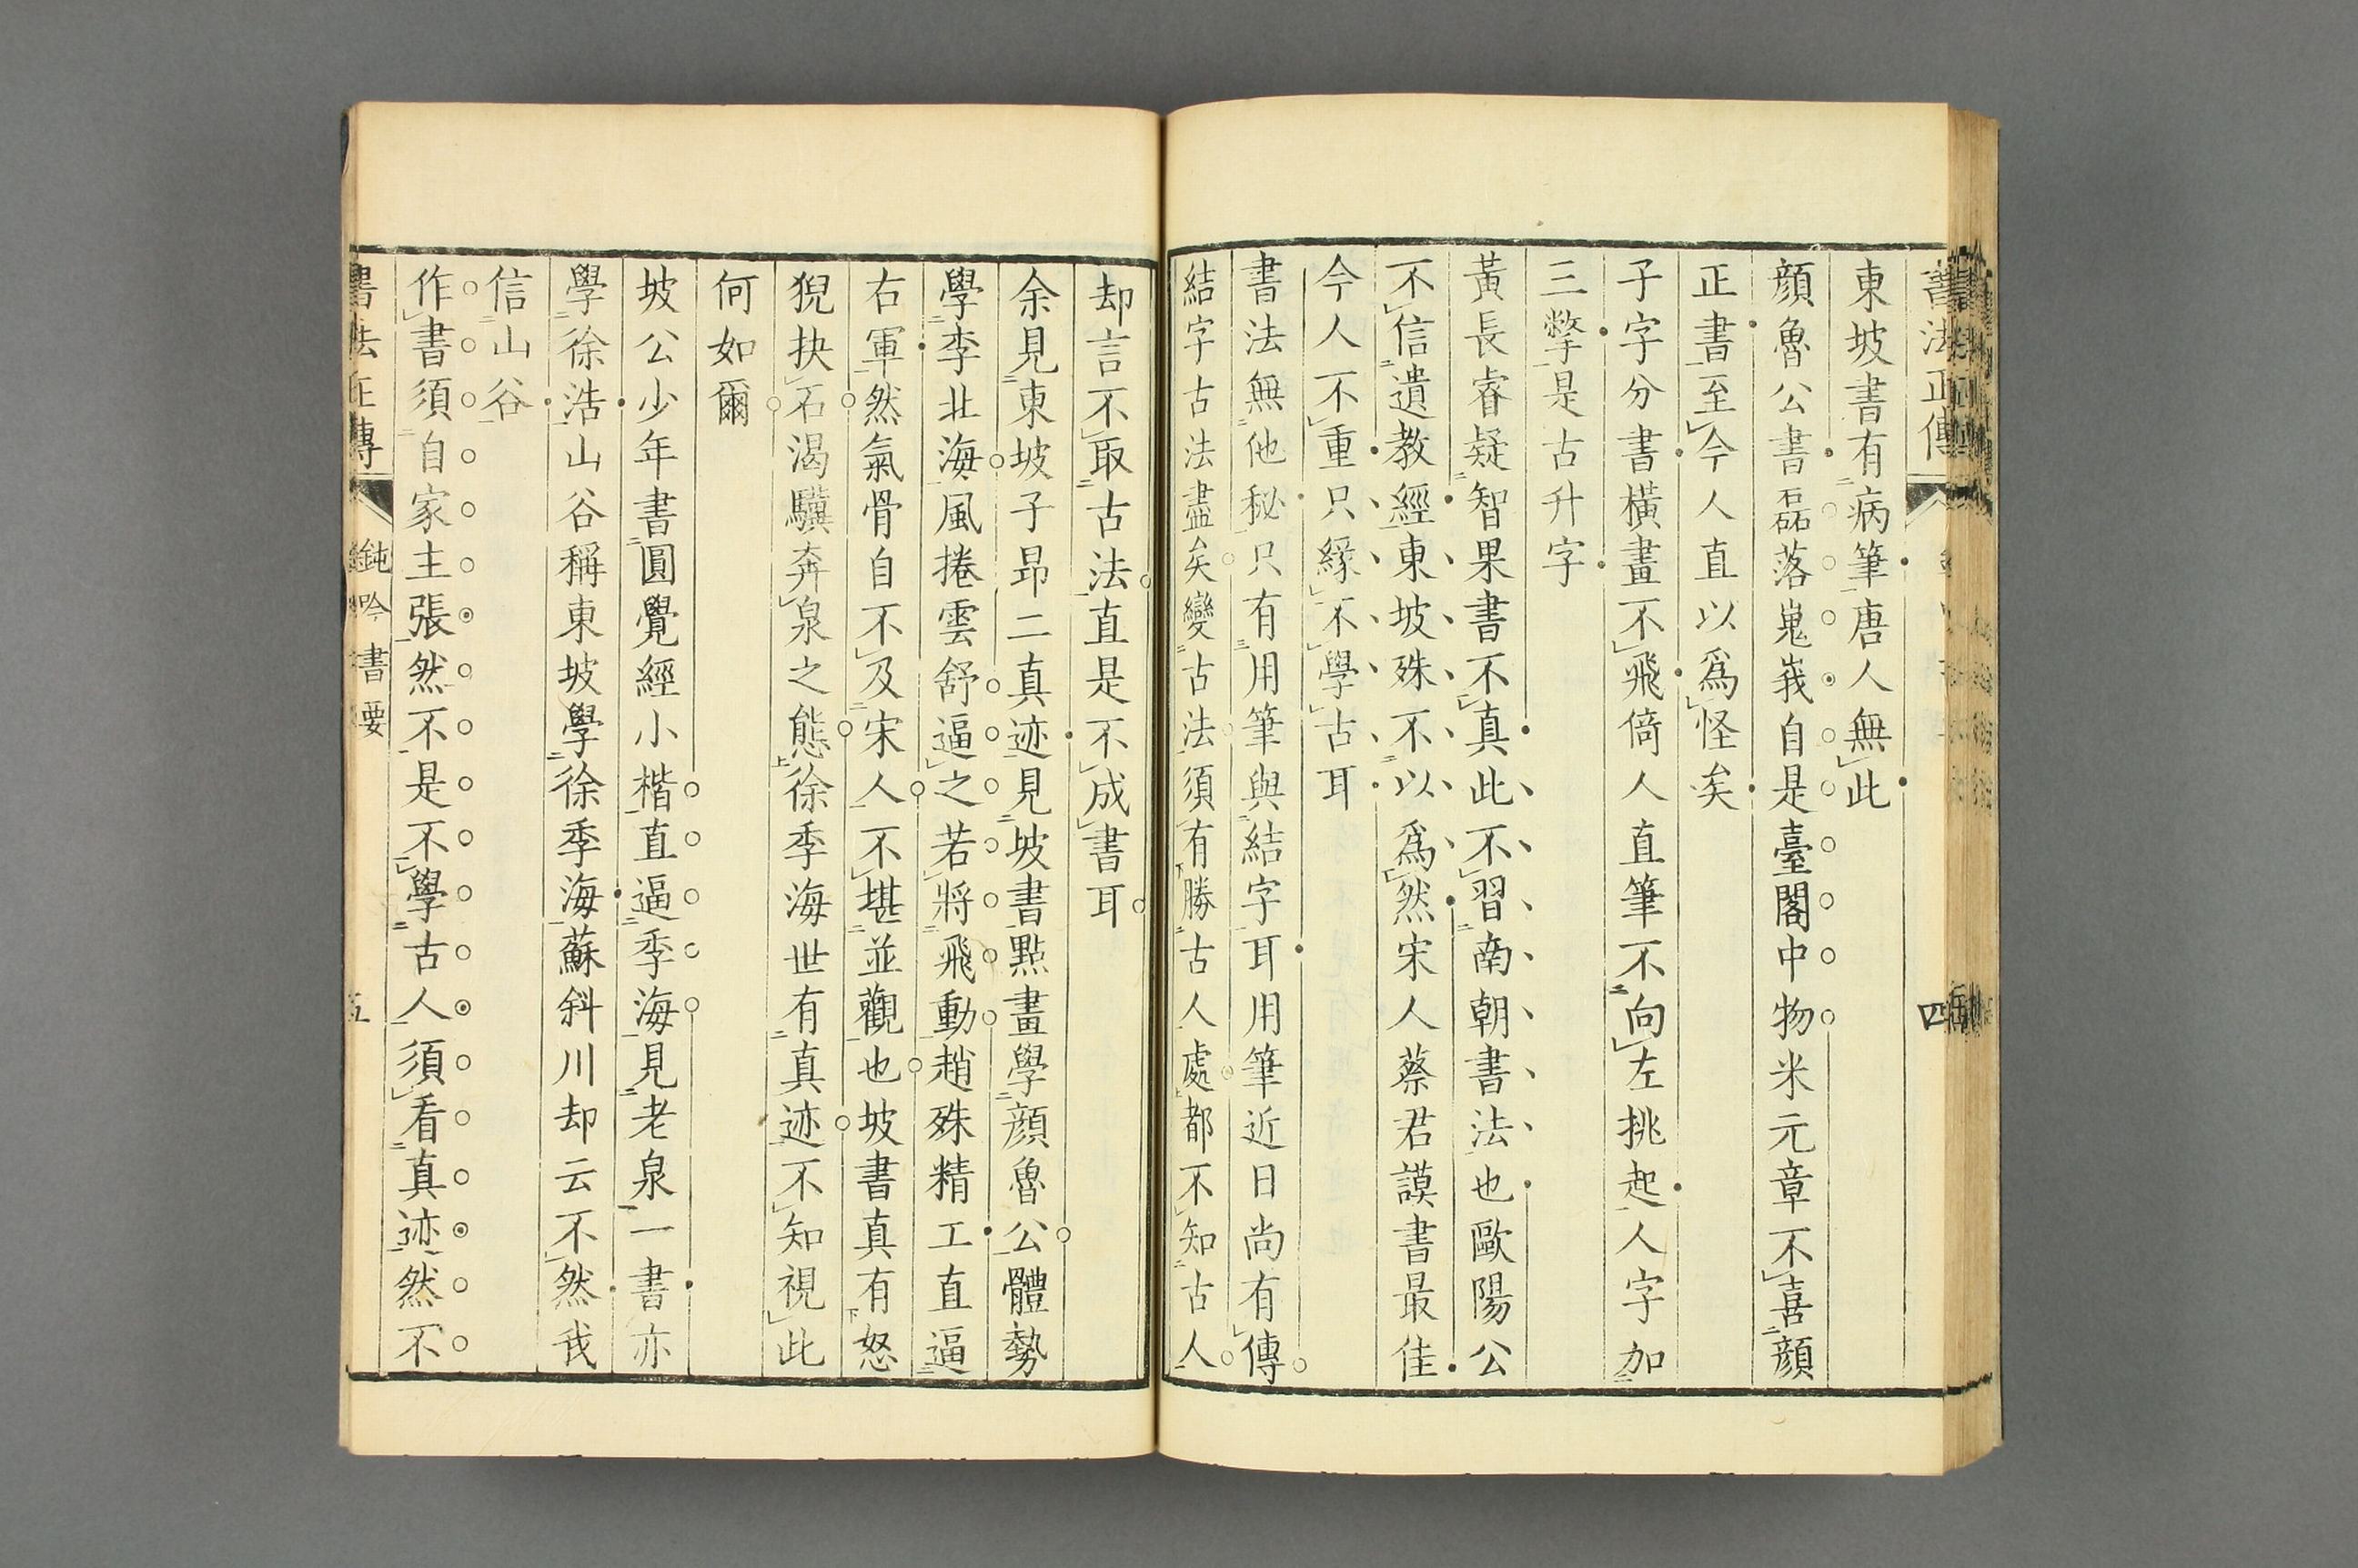 書法正傳
四
東坡書有病筆唐人無此
顏魯公書磊落嵬峩自是臺閣中物米元章不喜顏
正書至今人直以爲怪矣
子字分書橫畫不飛倚人直筆不向左挑起人字加
三撆是古升字
黃長睿疑智果書不真此不習南朝書法也歐陽公
不信遺教經東坡殊不以爲然宋人蔡君謨書最佳
今人不重只緣不學古耳
書法無他秘只有用筆與結字耳用筆近日尚有傳
結字古法盡矣變古法須有勝古人處都不知古人
却言不取古法直是不成書耳
余見東坡子昂二真迹見坡書點畫學顏魯公體勢
學李北海風捲雲舒逼之若將飛動趙殊精工直逼
右軍然氣骨自不及宋人不堪並觀也坡書真有怒
猊抉石渴驥奔泉之態徐季海世有真迹不知視此
何如爾
坡公少年書圓覺經小楷直逼季海見老泉一書亦
學徐浩山谷稱東坡學徐季海蘇斜川却云不然我
信山谷
作書須自家主張然不是不學古人須看真迹然不
書法正傳
鈍吟書要
五